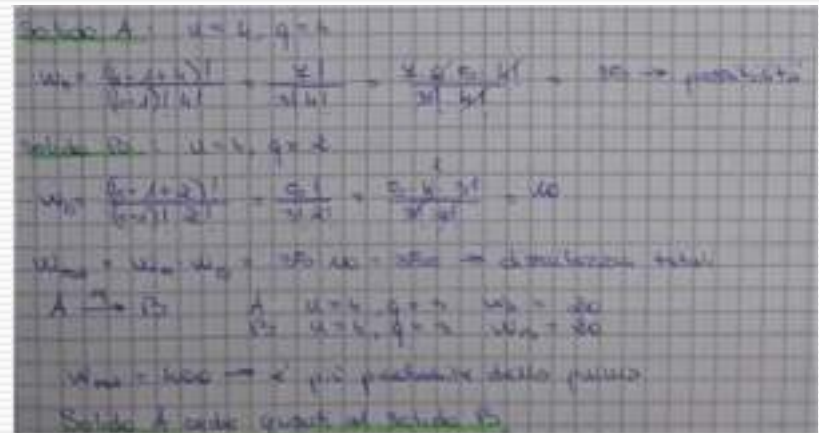 Solido A: u = 4, q = 4
W_A = (4-1+4)! / (4-1)! 4! = 7! / 3! 4! = 7 6 5 4! / 3! 4! = 35 → possibilità
Solido B: u = 4, q = 2
W_B = (4-1+2)! / (4-1)! 2! = 5! / 3! 2! = 5 4 3! / 3! 2! = 10
W_tot = W_A · W_B = 35 · 10 = 350 → distribuzioni totali
A → B A u = 4, q = 3 W_A = 20
B u = 4, q = 3 W_B = 20
W_tot = 400 → è più probabile della prima
Solido A cede quanti al solido B.